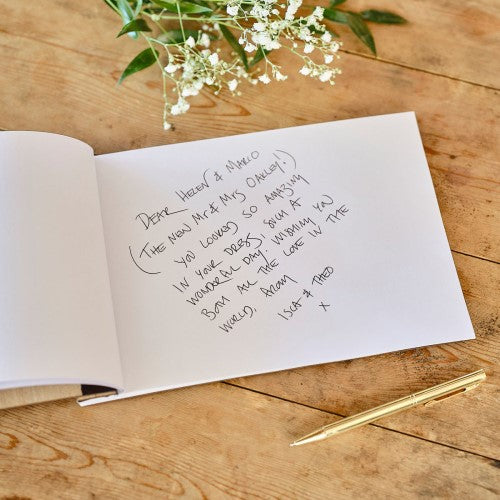 DEAR HELEN & MARCO
(THE NEW MR & MRS OAKLEY!)
YOU LOOKED SO AMAZING
IN YOUR DRESS, SUCH A
WONDERFUL DAY, WISHING YOU
BOTH ALL THE LOVE IN THE
WORLD, FROM
ISLA & THEO
X